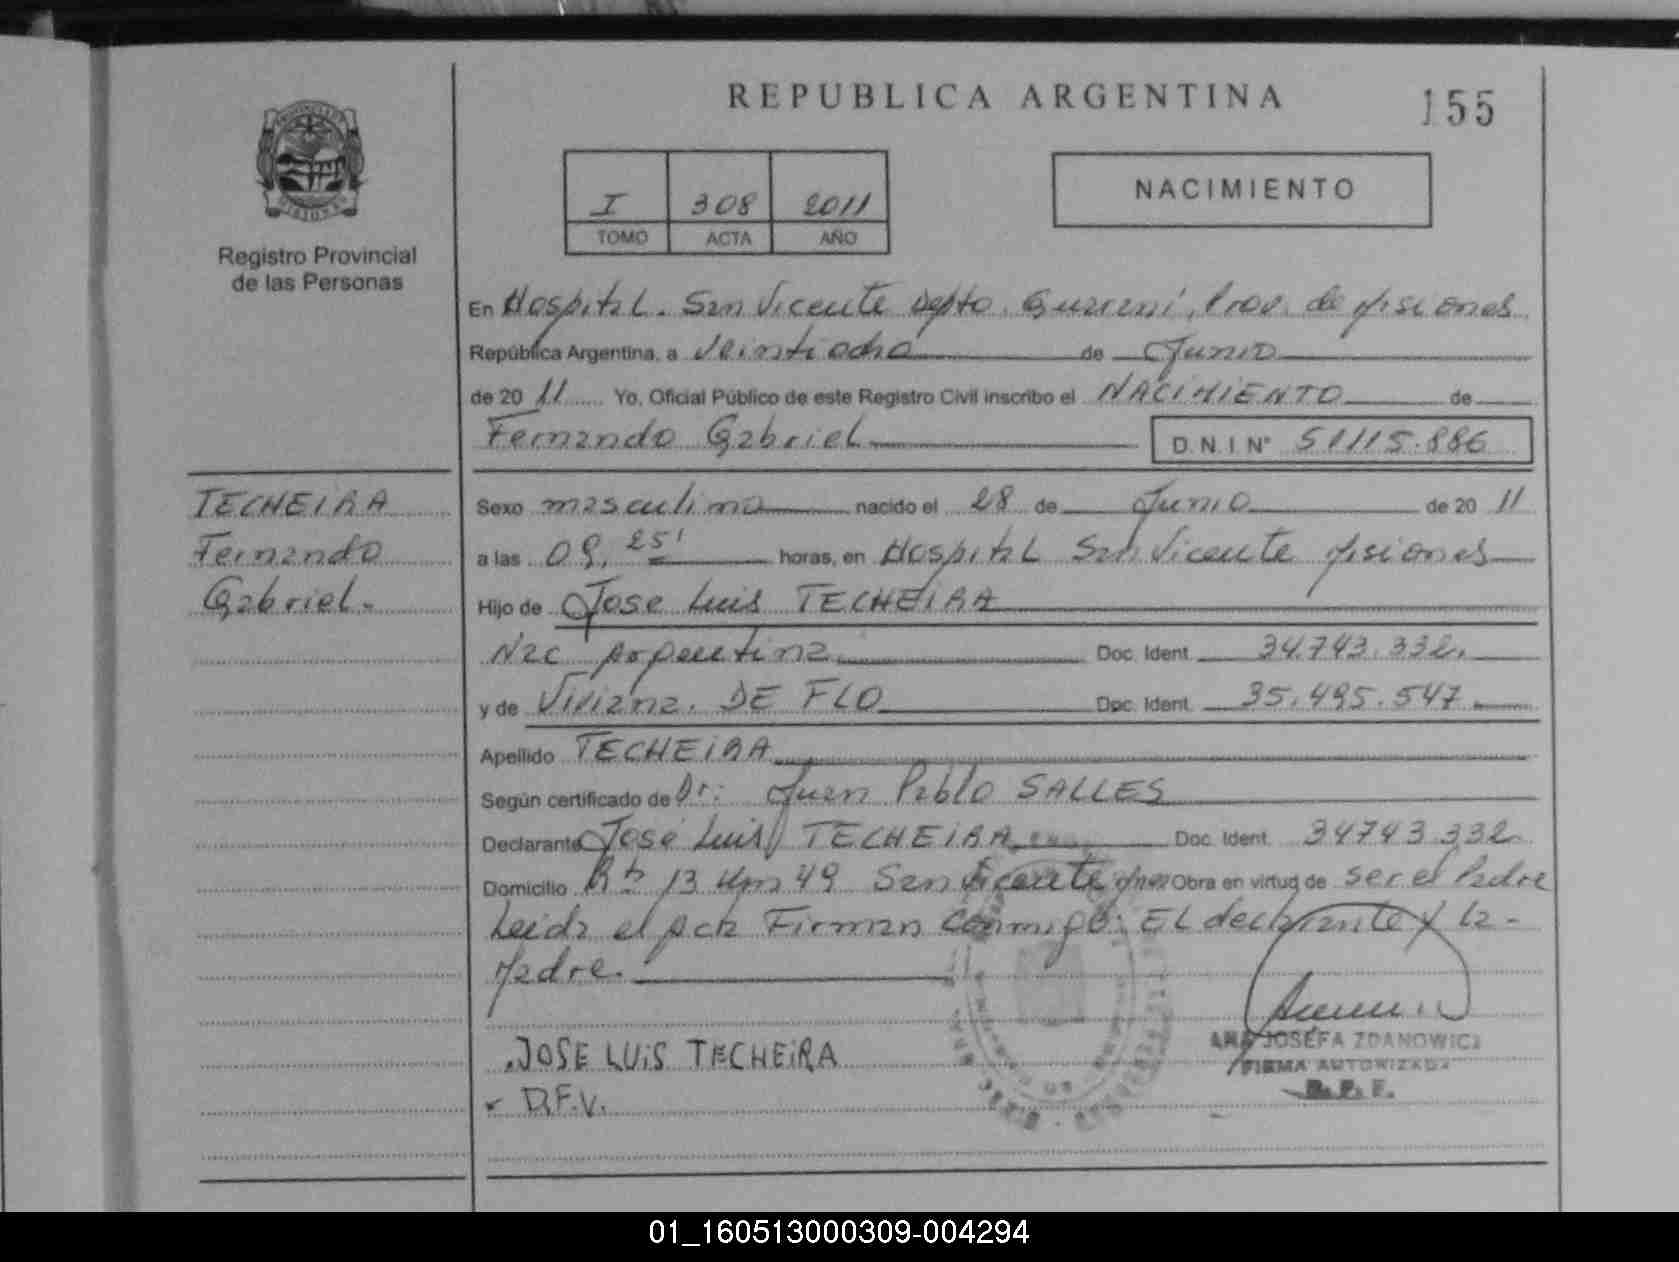 REPUBLICA ARGENTINA
155
I 308 2011
TOMO ACTA AÑO
NACIMIENTO
Registro Provincial
de las Personas
En Hospital. San Vicente Depto. Guarani, Prov. de Misiones
República Argentina, a veintiocho de Junio
de 20 11 Yo, Oficial Público de este Registro Civil inscribo el NACIMIENTO de
Fernando Gabriel D.N.I. Nº 51115.886
TECHEIRA
Fernando
Gabriel.
Sexo masculino nacido el 28 de Junio de 20 11
a las 09, 25' horas, en Hospital San Vicente Misiones
Hijo de Jose Luis TECHEIRA
Nac Argentina Doc. Ident. 34.743.332.
y de Viviana. DE FLO Doc. Ident. 35.495.547.
Apellido TECHEIRA
Según certificado de Dr: Juan Pablo SALLES
Declarante José Luis TECHEIRA Doc. Ident. 34743332
Domicilio 13 Km 49 San Vicente Obra en virtud de ser el Padre
Leida el Acta Firman Conmigo: El declarante y la-
Madre.
JOSE LUiS TECHEiRA
D.F.V.
ANA JOSEFA ZDANOWICZ
FIRMA AUTORIZADA
01_160513000309-004294